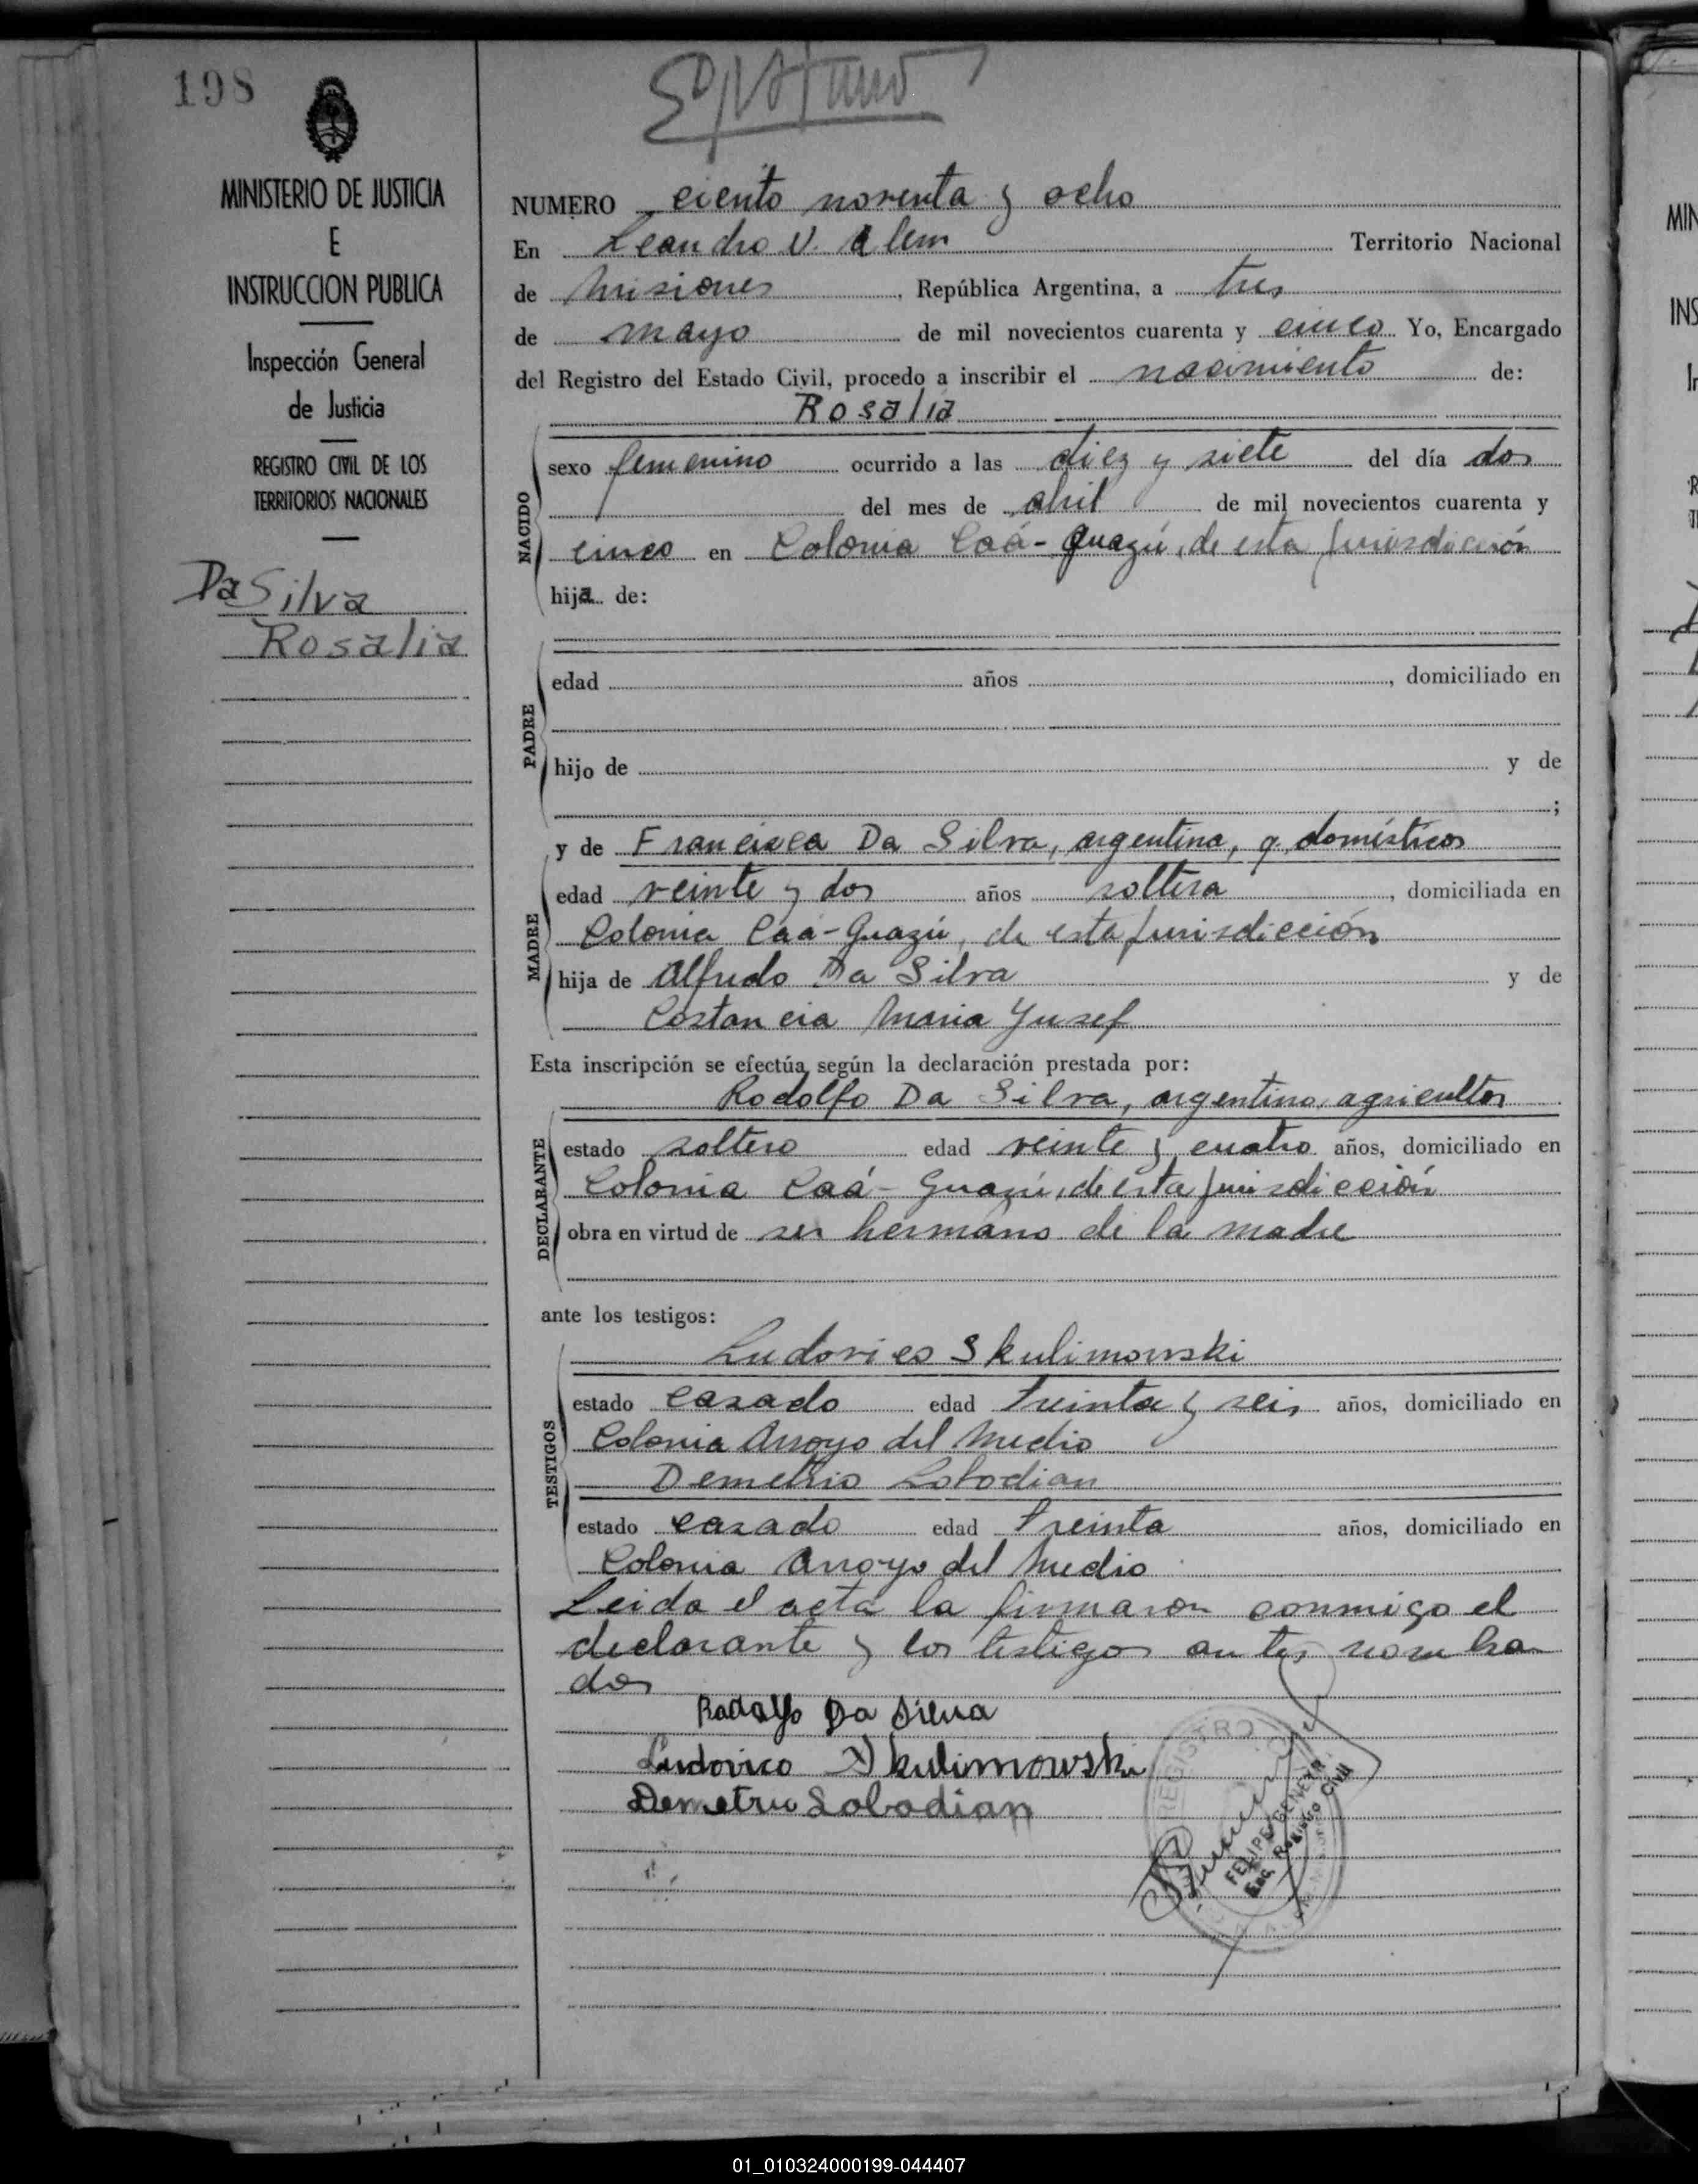 198
MINISTERIO DE JUSTICIA
E
INSTRUCCION PUBLICA
Inspección General
de Justicia
REGISTRO CIVIL DE LOS
TERRITORIOS NACIONALES
Da Silva
Rosalia
NUMERO ciento noventa y ocho
En Leandro N. Alem Territorio Nacional
de Misiones, República Argentina, a tres
de mayo de mil novecientos cuarenta y cinco Yo, Encargado
del Registro del Estado Civil, procedo a inscribir el nacimiento de:
Rosalia
NACIDO
sexo femenino ocurrido a las diez y siete del día dos
del mes de abril de mil novecientos cuarenta y
cinco en Colonia Caá-Guazú, de esta jurisdicción
hija de:
PADRE
edad años , domiciliado en
hijo de y de
;
y de Francisca Da Silva, argentina, q. domésticos
MADRE
edad veinte y dos años soltera, domiciliada en
Colonia Caá-Guazú, de esta jurisdicción
hija de Alfredo Da Silva y de
Costancia Maria Yusef
Esta inscripción se efectúa según la declaración prestada por:
Rodolfo Da Silva, argentino, agricultor
DECLARANTE
estado soltero edad veinte y cuatro años, domiciliado en
Colonia Caá-Guazú, de esta jurisdicción
obra en virtud de ser hermano de la madre
ante los testigos:
Ludovico Skulimowski
TESTIGOS
estado casado edad treinta y seis años, domiciliado en
Colonia Arroyo del Medio
Demetrio Lobodian
estado casado edad treinta años, domiciliado en
Colonia Arroyo del Medio
Leida el acta la firmaron conmigo el
declarante y los testigos antes nombra
dos
Rodolfo Da Silva
Ludovico Skulimowski
Demetrio Lobodian
REGISTRO
FELIPE GENEZA
Enc. Registro Civil
MIN
INS
01_010324000199-044407